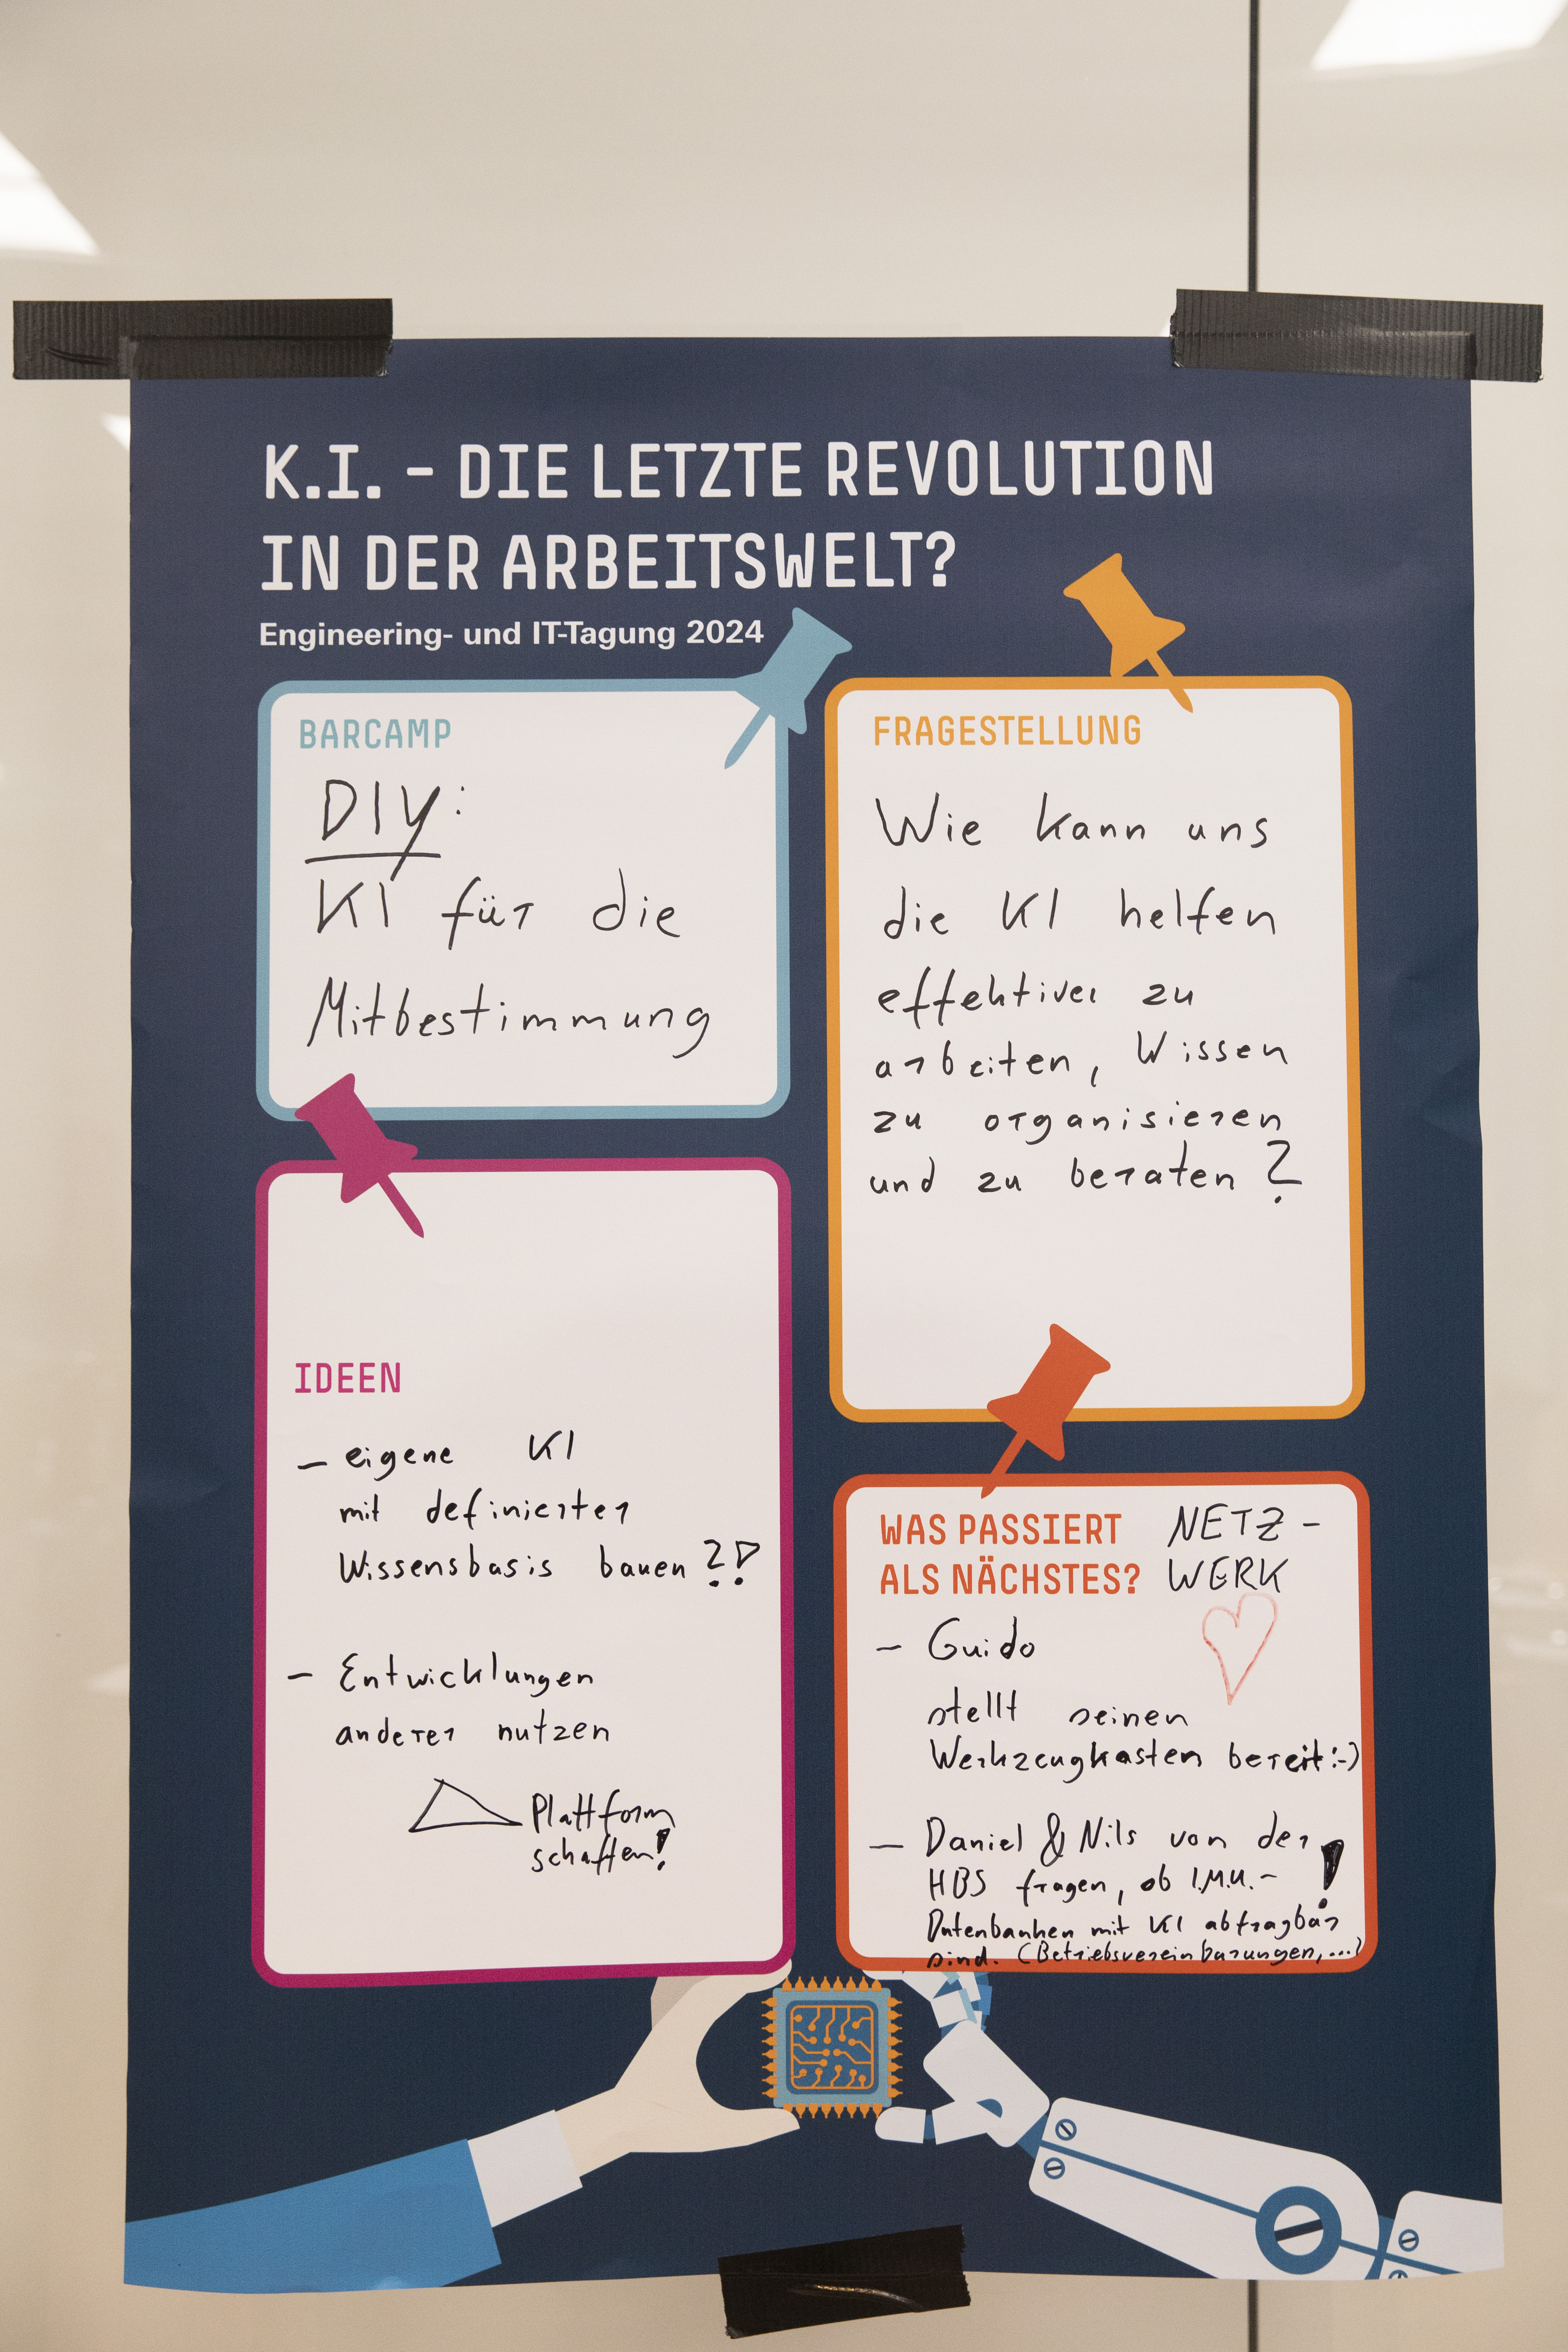 K.I. – DIE LETZTE REVOLUTION
IN DER ARBEITSWELT?
Engineering- und IT-Tagung 2024
BARCAMP
DIY:
KI für die
Mitbestimmung
FRAGESTELLUNG
Wie kann uns
die KI helfen
effektiver zu
arbeiten, Wissen
zu organisieren
und zu beraten?
IDEEN
– eigene KI
mit definierter
Wissensbasis bauen?!
– Entwicklungen
anderer nutzen
Plattform
schaffen!
WAS PASSIERT NETZ-
ALS NÄCHSTES? WERK
– Guido
stellt seinen
Werkzeugkasten bereit :-)
– Daniel & Nils von der
HBS fragen, ob I.M.U.- !
Datenbanken mit KI abfragbar
sind. (Betriebsvereinbarungen,...)